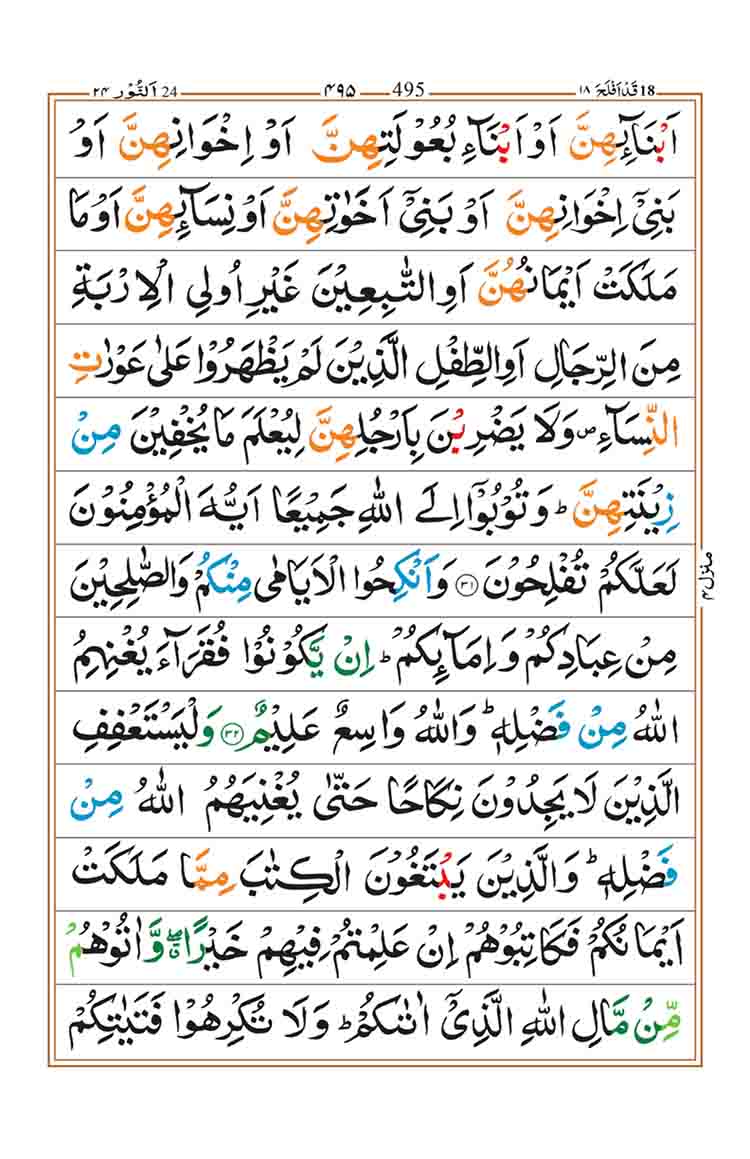 18 قَدْ اَفْلَحَ ١٨ 495 ۴۹۵ 24 اَلنُّوْر ٢۴
اَبْنَآئِهِنَّ اَوْ اَبْنَآءِ بُعُوْلَتِهِنَّ اَوْ اِخْوَانِهِنَّ اَوْ
بَنِیْۤ اِخْوَانِهِنَّ اَوْ بَنِیْۤ اَخَوٰتِهِنَّ اَوْ نِسَآئِهِنَّ اَوْ مَا
مَلَكَتْ اَیْمَانُهُنَّ اَوِ التّٰبِعِیْنَ غَیْرِ اُولِی الْاِرْبَةِ
مِنَ الرِّجَالِ اَوِ الطِّفْلِ الَّذِیْنَ لَمْ یَظْهَرُوْا عَلٰی عَوْرٰتِ
النِّسَآءِ ۪ وَلَا یَضْرِبْنَ بِاَرْجُلِهِنَّ لِیُعْلَمَ مَا یُخْفِیْنَ مِنْ
زِیْنَتِهِنَّ ؕ وَ تُوْبُوْۤا اِلَی اللّٰهِ جَمِیْعًا اَیُّهَ الْمُؤْمِنُوْنَ
لَعَلَّكُمْ تُفْلِحُوْنَ ﴿۳۱﴾ وَ اَنْكِحُوا الْاَیَامٰی مِنْكُمْ وَ الصّٰلِحِیْنَ
مِنْ عِبَادِكُمْ وَ اِمَآئِكُمْ ؕ اِنْ یَّكُوْنُوْا فُقَرَآءَ یُغْنِهِمُ
اللّٰهُ مِنْ فَضْلِهٖ ؕ وَ اللّٰهُ وَاسِعٌ عَلِیْمٌ ﴿۳۲﴾ وَ لْیَسْتَعْفِفِ
الَّذِیْنَ لَا یَجِدُوْنَ نِكَاحًا حَتّٰی یُغْنِیَهُمُ اللّٰهُ مِنْ
فَضْلِهٖ ؕ وَ الَّذِیْنَ یَبْتَغُوْنَ الْكِتٰبَ مِمَّا مَلَكَتْ
اَیْمَانُكُمْ فَكَاتِبُوْهُمْ اِنْ عَلِمْتُمْ فِیْهِمْ خَیْرًا ۖۗ وَّ اٰتُوْهُمْ
مِّنْ مَّالِ اللّٰهِ الَّذِیْۤ اٰتٰىكُمْ ؕ وَ لَا تُكْرِهُوْا فَتَیٰتِكُمْ
منزل ۴